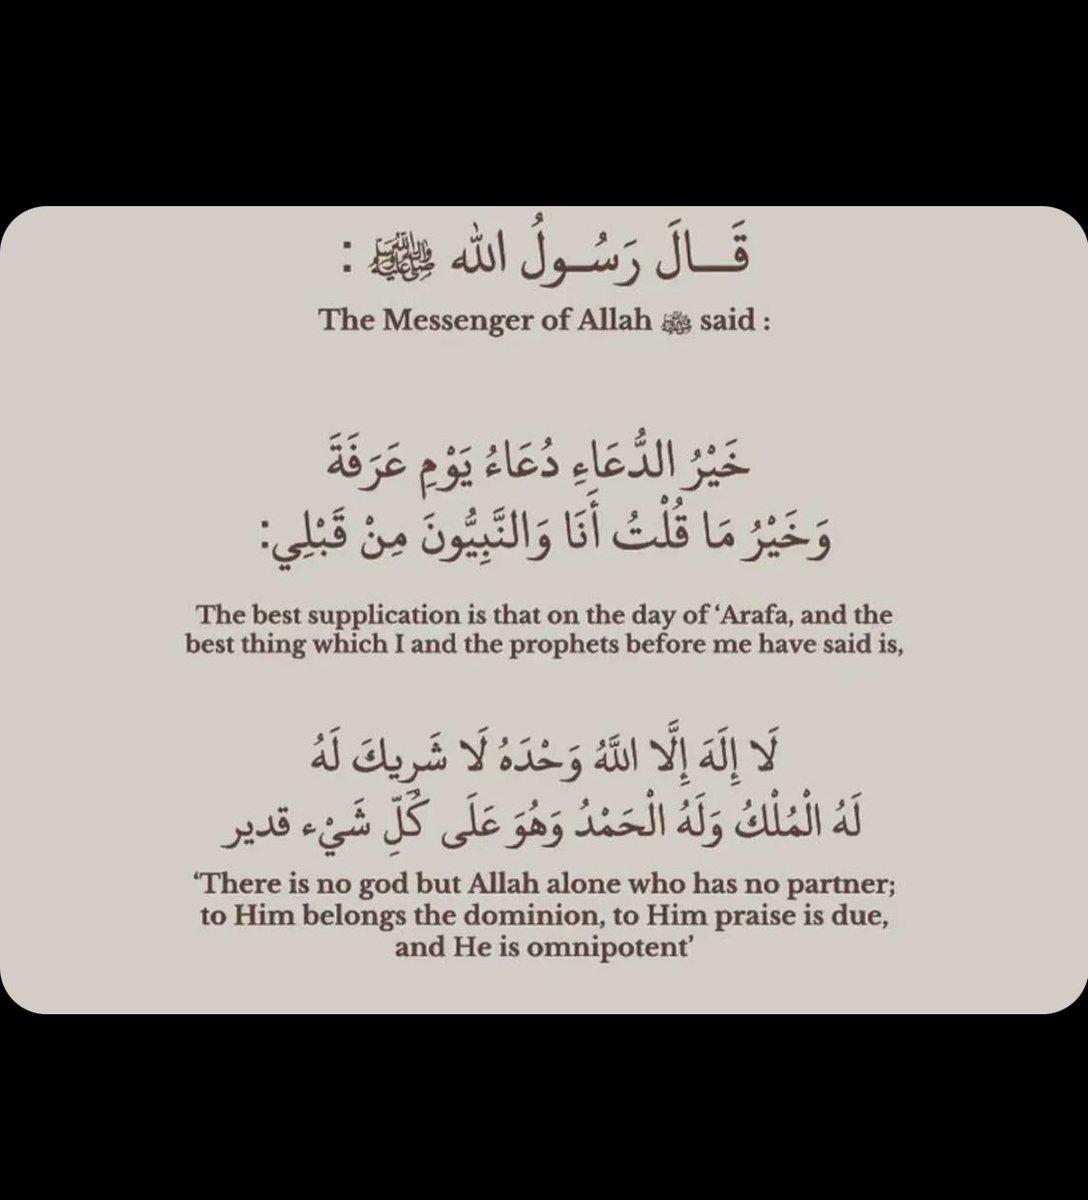 قَـــالَ رَسُـــولُ الله ﷺ :
The Messenger of Allah ﷺ said :
خَيْرُ الدُّعَاءِ دُعَاءُ يَوْمِ عَرَفَةَ
وَخَيْرُ مَا قُلْتُ أَنَا وَالنَّبِيُّونَ مِنْ قَبْلِي:
The best supplication is that on the day of ‘Arafa, and the
best thing which I and the prophets before me have said is,
لَا إِلَهَ إِلَّا اللَّهُ وَحْدَهُ لَا شَرِيكَ لَهُ
لَهُ الْمُلْكُ وَلَهُ الْحَمْدُ وَهُوَ عَلَى كُلِّ شَيْء قدير
‘There is no god but Allah alone who has no partner;
to Him belongs the dominion, to Him praise is due,
and He is omnipotent’